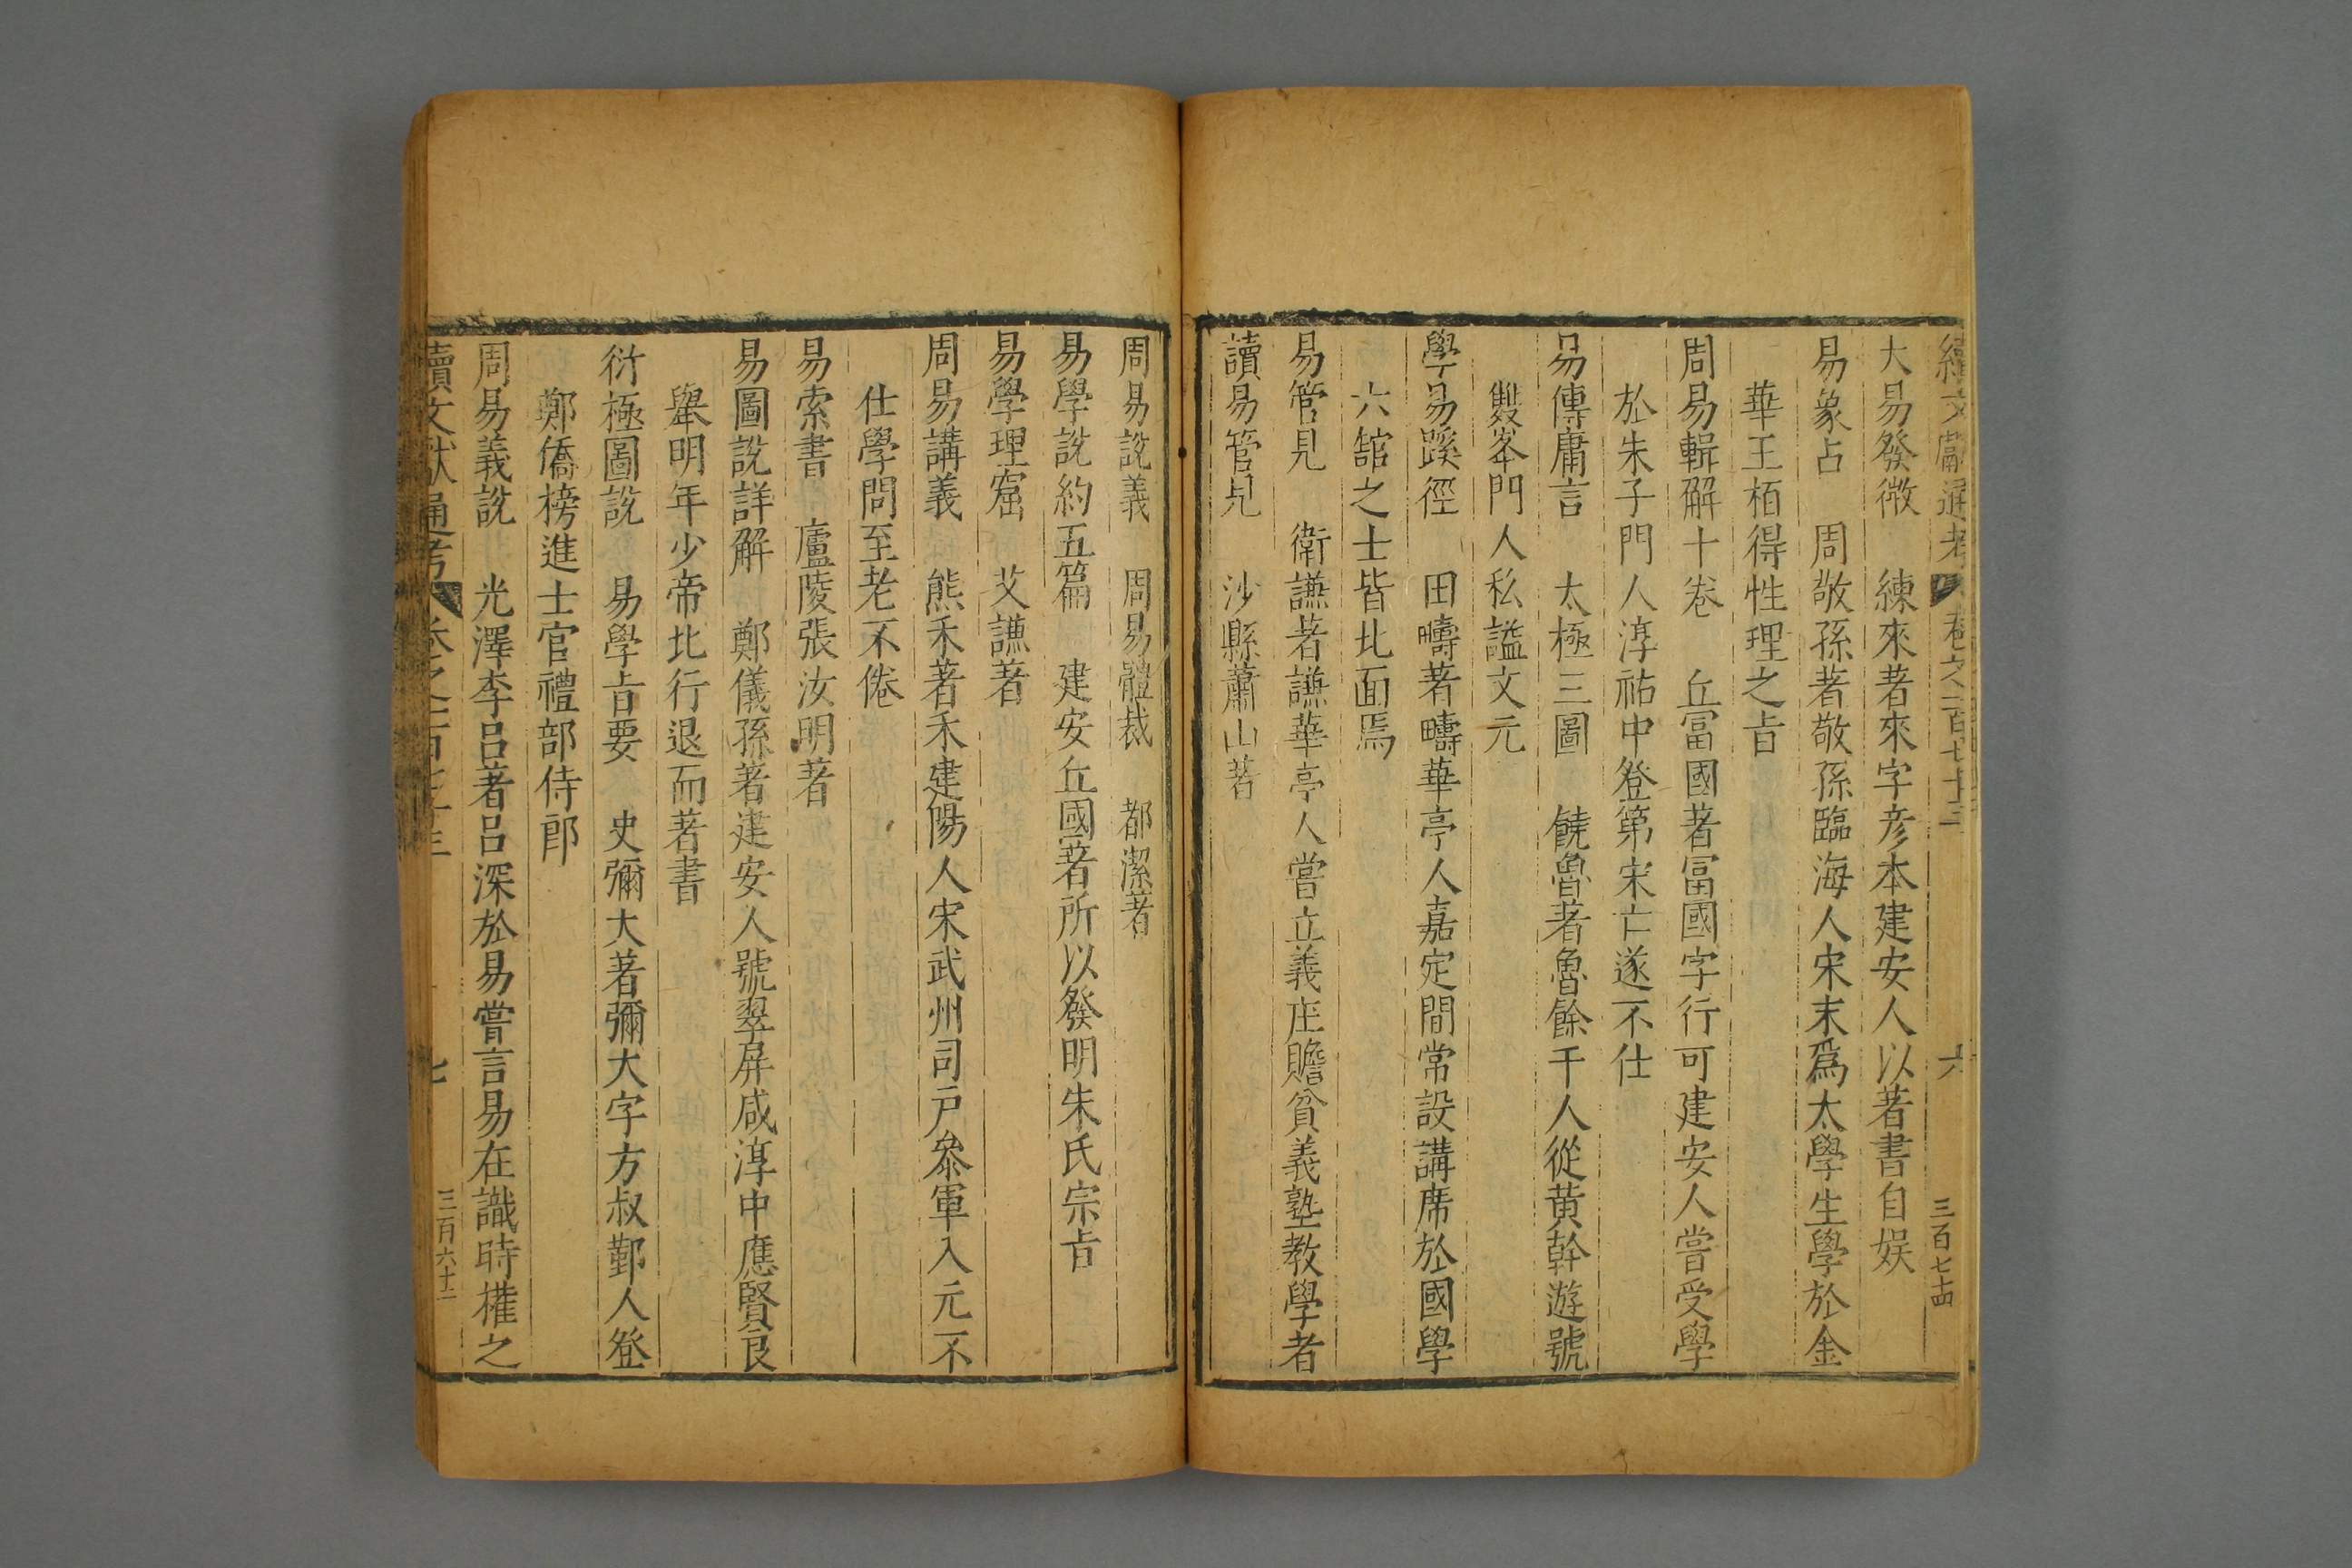 續文獻通考 卷之一百七十三 六 三百七十四
大易發微 練來著來字彦本建安人以著書自娱
易象占 周敬孫著敬孫臨海人宋末爲太學生學於金
華王栢得性理之旨
周易輯解十卷 丘冨國著冨國字行可建安人嘗受學
於朱子門人淳祐中登第宋亡遂不仕
易傳庸言 太極三圖 饒魯著魯餘干人從黄幹遊號
雙峯門人私謚文元
學易蹊徑 田疇著疇華亭人嘉定間常設講席於國學
六館之士皆北面焉
易管見 衛謙著謙華亭人嘗立義庄贍貧義塾教學者
讀易管見 沙縣蕭山著
周易説義 周易體裁 都潔著
易學説約五篇 建安丘國著所以發明朱氏宗旨
易學理窟 艾謙著
周易講義 熊禾著禾建陽人宋武州司戸叅軍入元不
仕學問至老不倦
易索書 廬陵張汝明著
易圖説詳解 鄭儀孫著建安人號翠屏咸淳中應賢良
舉明年少帝北行退而著書
衍極圖説 易學旨要 史彌大著彌大字方叔鄞人登
鄭僑榜進士官禮部侍郎
周易義説 光澤李吕著吕深於易嘗言易在識時權之
續文獻通考 卷之一百七十三 七 三百六十二